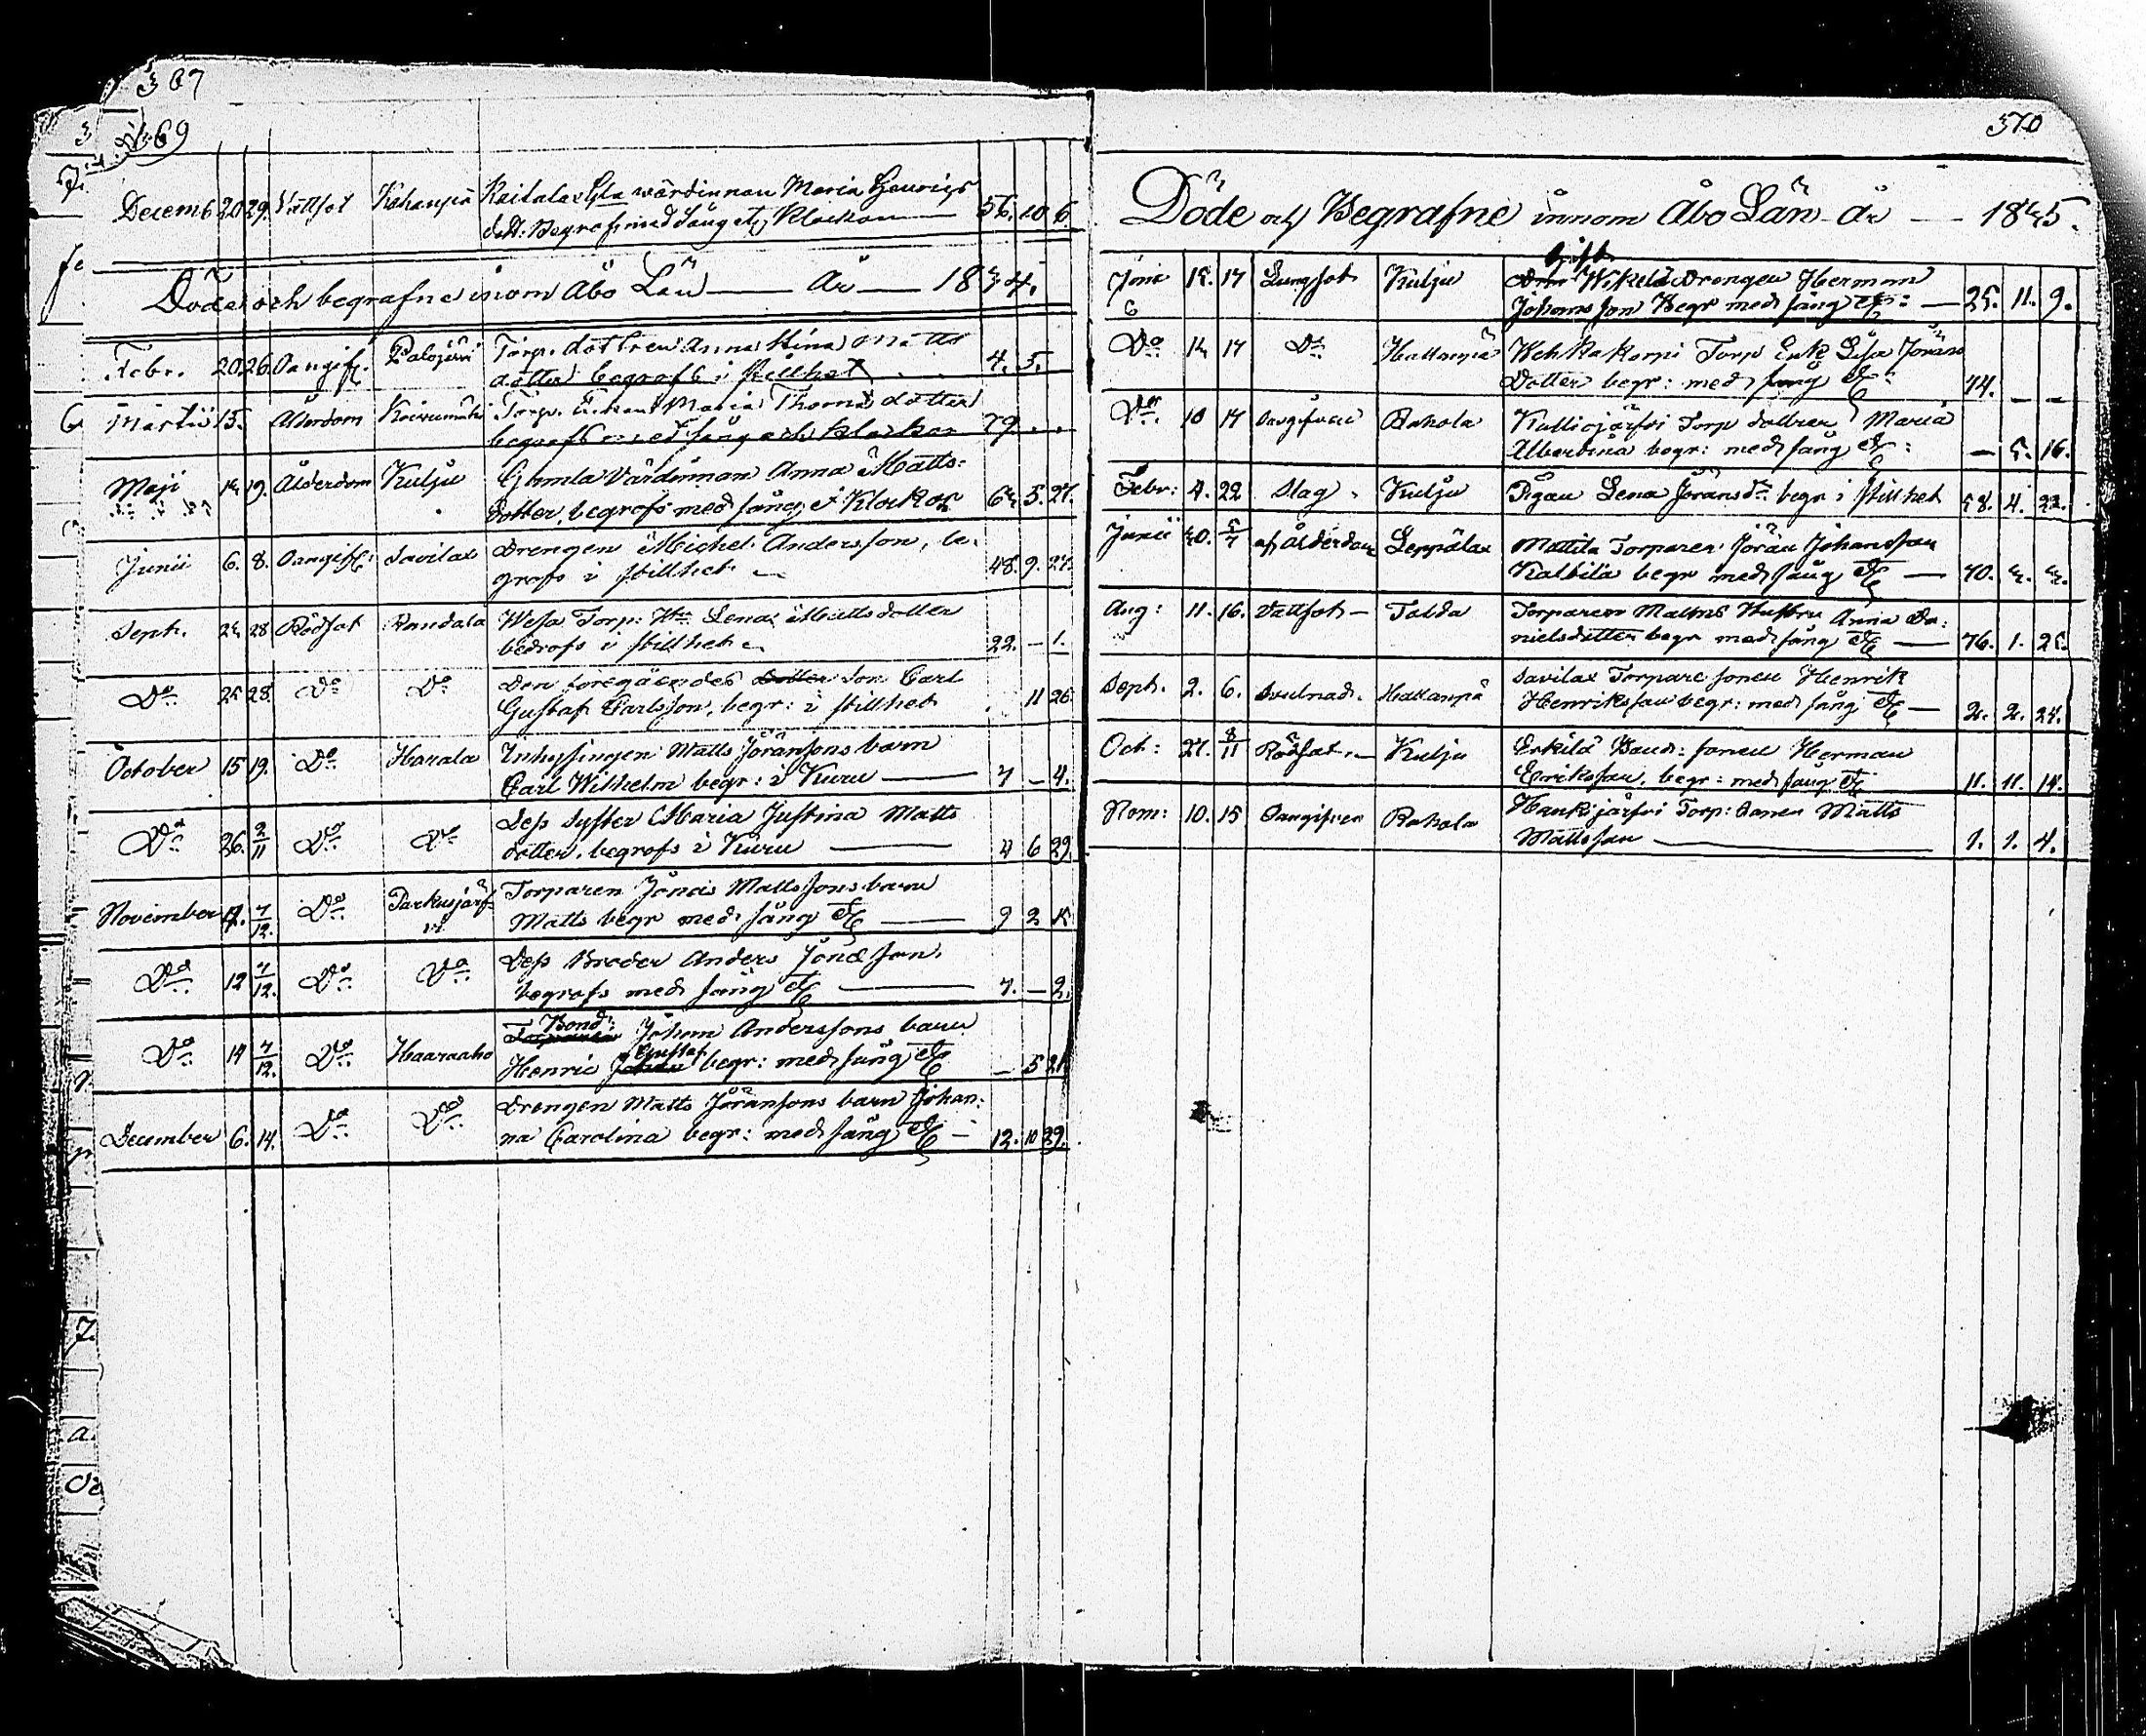 367
369
Decemb 20 29. Vattsot Kahanpä Kaitalax Gla wärdinnan Maria Henrics
dott: Begrafs med sång etc Klockan — 56. 10 6.
Döde och begrafne inom Åbo Län — År — 1844.
Febr. 20 26 Oangif. Palojärvi Torp. dottren Anna Stina Matts
dotter begrafs i stillhet 4. 5.
Martii 15. Ålderdom Torp. Enkan Maria Thomæ dotter
begrafs med sång och klockor 79
Maji 14 19. Ålderdom Kulju Gamla Värdinnan Anna Matts:
dotter, begrafs med sång & Klockor 64 5. 27.
Junii 6. 8. Oangif: Savilax Drengen Michel Andersson, be:
grafs i stillhet 48. 9. 27.
Sept. 24 28 Rödsot Randala Wesa Torp: Hu Lena Mattsdotter
bedrafs i stillhet 22. — 1.
Do 25 28. Do Do Den föregåendes Dotter Son Carl
Gustaf Carlsson, begr: i stillhet 11 26
October 15 19. Do Harala Inhysingen Matts Jöransons barn
Carl Wilhelm begr: i Kuru — 7 — 4.
Do 26. 2/11 Do Do Dess Syster Maria Justina Matts
dotter, begrafs i Kuru — 4 6 29.
November 7/12. Do Parkusjärf
vi Torparen Jonas Mattssons barn
Matts begr med sång etc — 9 2
Do 12 7/12. Do Do Dess Broder Anders Jonæ Son.
begrafs med sång etc — 7. — 2.
Bond:
Do 14 7/12. Do Haaraaho Torparen Johan Anderssons barn
Gustaf
Henric Johan begr: med sång etc — 5 21
December 6. 14. Do Do Drengen Matts Jöransons barn Johan:
na Carolina begr: med sång etc — 12. 10 29.
370
Döde och Begrafne innom Åbo Län år — 1845.
Gift
15. 17 Lungsot Kulju Drengen Herman
Johansson Begr med sång etc: — 25. 11. 9.
Do 14 17 Do Hattanpä Torp Enk Lisa Jörans
Dotter begr: med sång etc: 74. — —
Do. 10 17 Oangifven Rahola Kalliojärfvi Torp dottren Maria
Albertina begr: med sång etc: — 5. 16.
Febr: 4. 22 Slag. Kulju Pigan Lena Jörans Dr begr i stillhet 58. 4. 22.
Junii 30. 5/7 af ålderdom Leppälax Mattila Torparen Jöran Johansson
begr med sång etc — 70. 4. 4.
Aug: 11. 16. Vattsot — Torparen Hustru Anna Da:
nielsdotter begr med sång etc — 76. 1. 25.
Sept. 2. 6. Svulnad. Hattanpä Savilax Torpare sonen Henrik
Henriksson begr: med sång etc — 2. 2. 24.
Oct: 27. 8/11 Rödsot. — Kulju Erkilä Bond: sonen Herman
Eriksson, begr: med sång etc 11. 11. 14.
Nom: 10. 15 Oangifven Rahola Hankijärfvi Torp: Sonen Matts
Mattsson — 1. 1. 4.